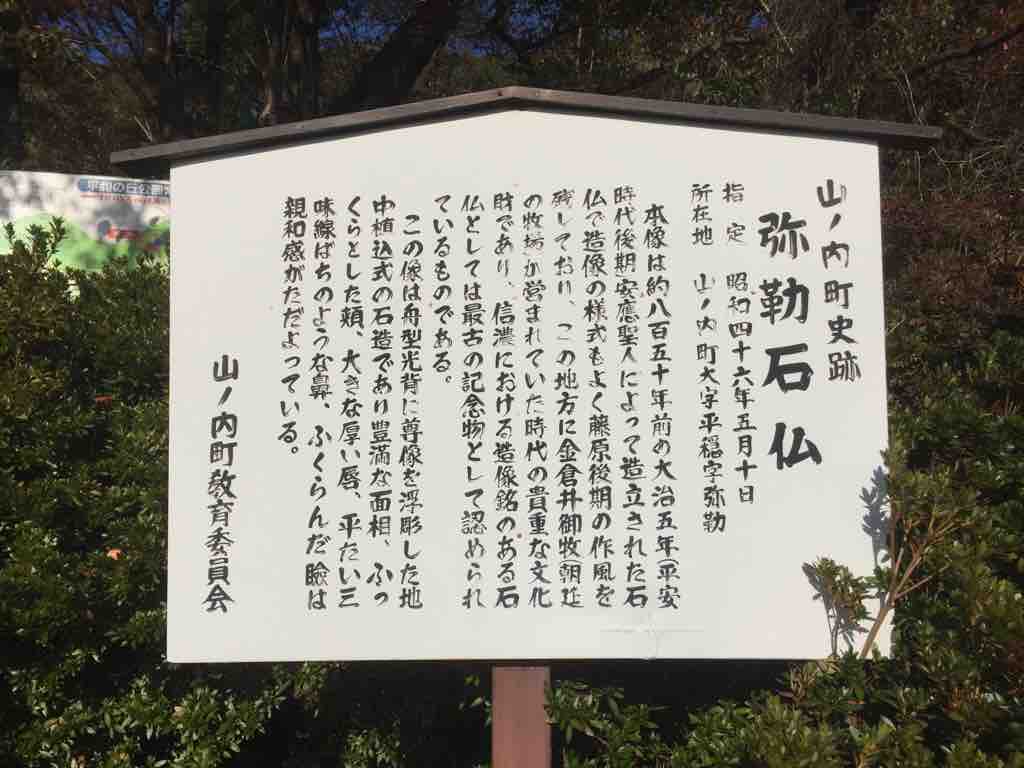 山ノ内町史跡
弥勒石仏
指定 昭和四十六年五月十日
所在地 山ノ内町大字平穏字弥勒
本像は約八百五十年前の大治五年(平安
時代後期)安應聖人によって造立された石
仏で造像の様式もよく藤原後期の作風を
残しており、この地方に金倉井御牧(朝廷
の牧場)が営まれていた時代の貴重な文化
財であり、信濃における造像銘のある石
仏としては最古の記念物として認められ
ているものである。
この像は舟型光背に尊像を浮彫した地
中植込式の石造であり豊満な面相、ふっ
くらとした頬、大きな厚い唇、平たい三
味線ばちのような鼻、ふくらんだ瞼は
親和感がただよっている。
山ノ内町教育委員会